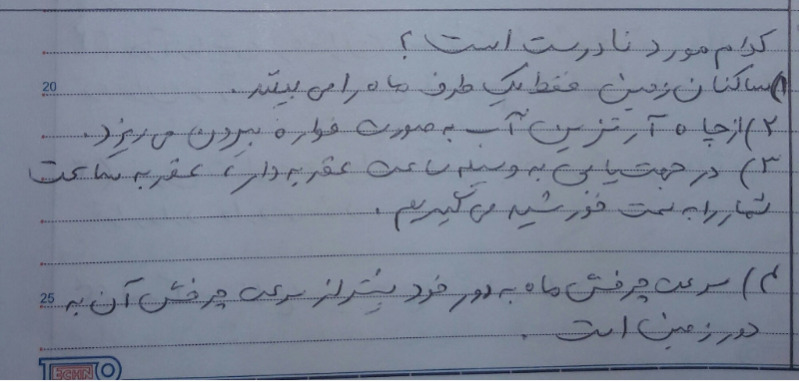 کدام مورد نادرست است ؟
۱) ساکنان زمین فقط یک طرف ماه را می بینند.
20
۲) از چاه آرتزین آب به صورت فواره بیرون می ریزد.
۳) در جهت یابی به وسیله ساعت عقربه دار ، عقربه ساعت
شمار را به سمت خورشید می گیریم .
۴) سرعت چرخش ماه به دور خود بیشتر از سرعت چرخش آن به
25
دور زمین است .
ECHN